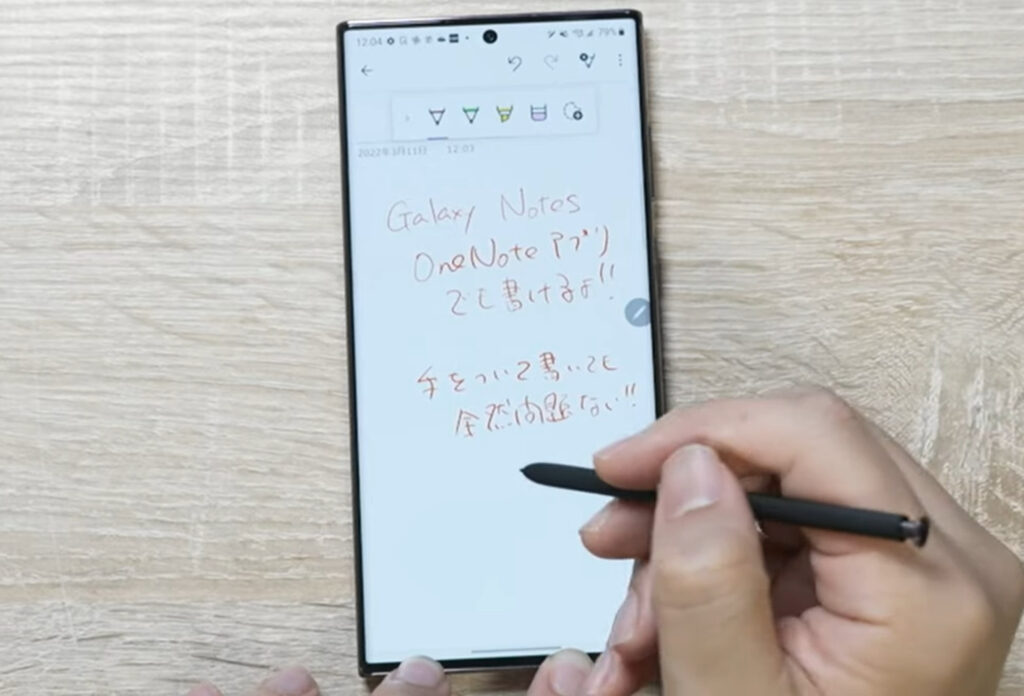 12:04 79%
2022年3月11日 12:03
Galaxy Notes
OneNoteアプリ
でも書けるよ!!
手をついて書いても
全然問題ない!!